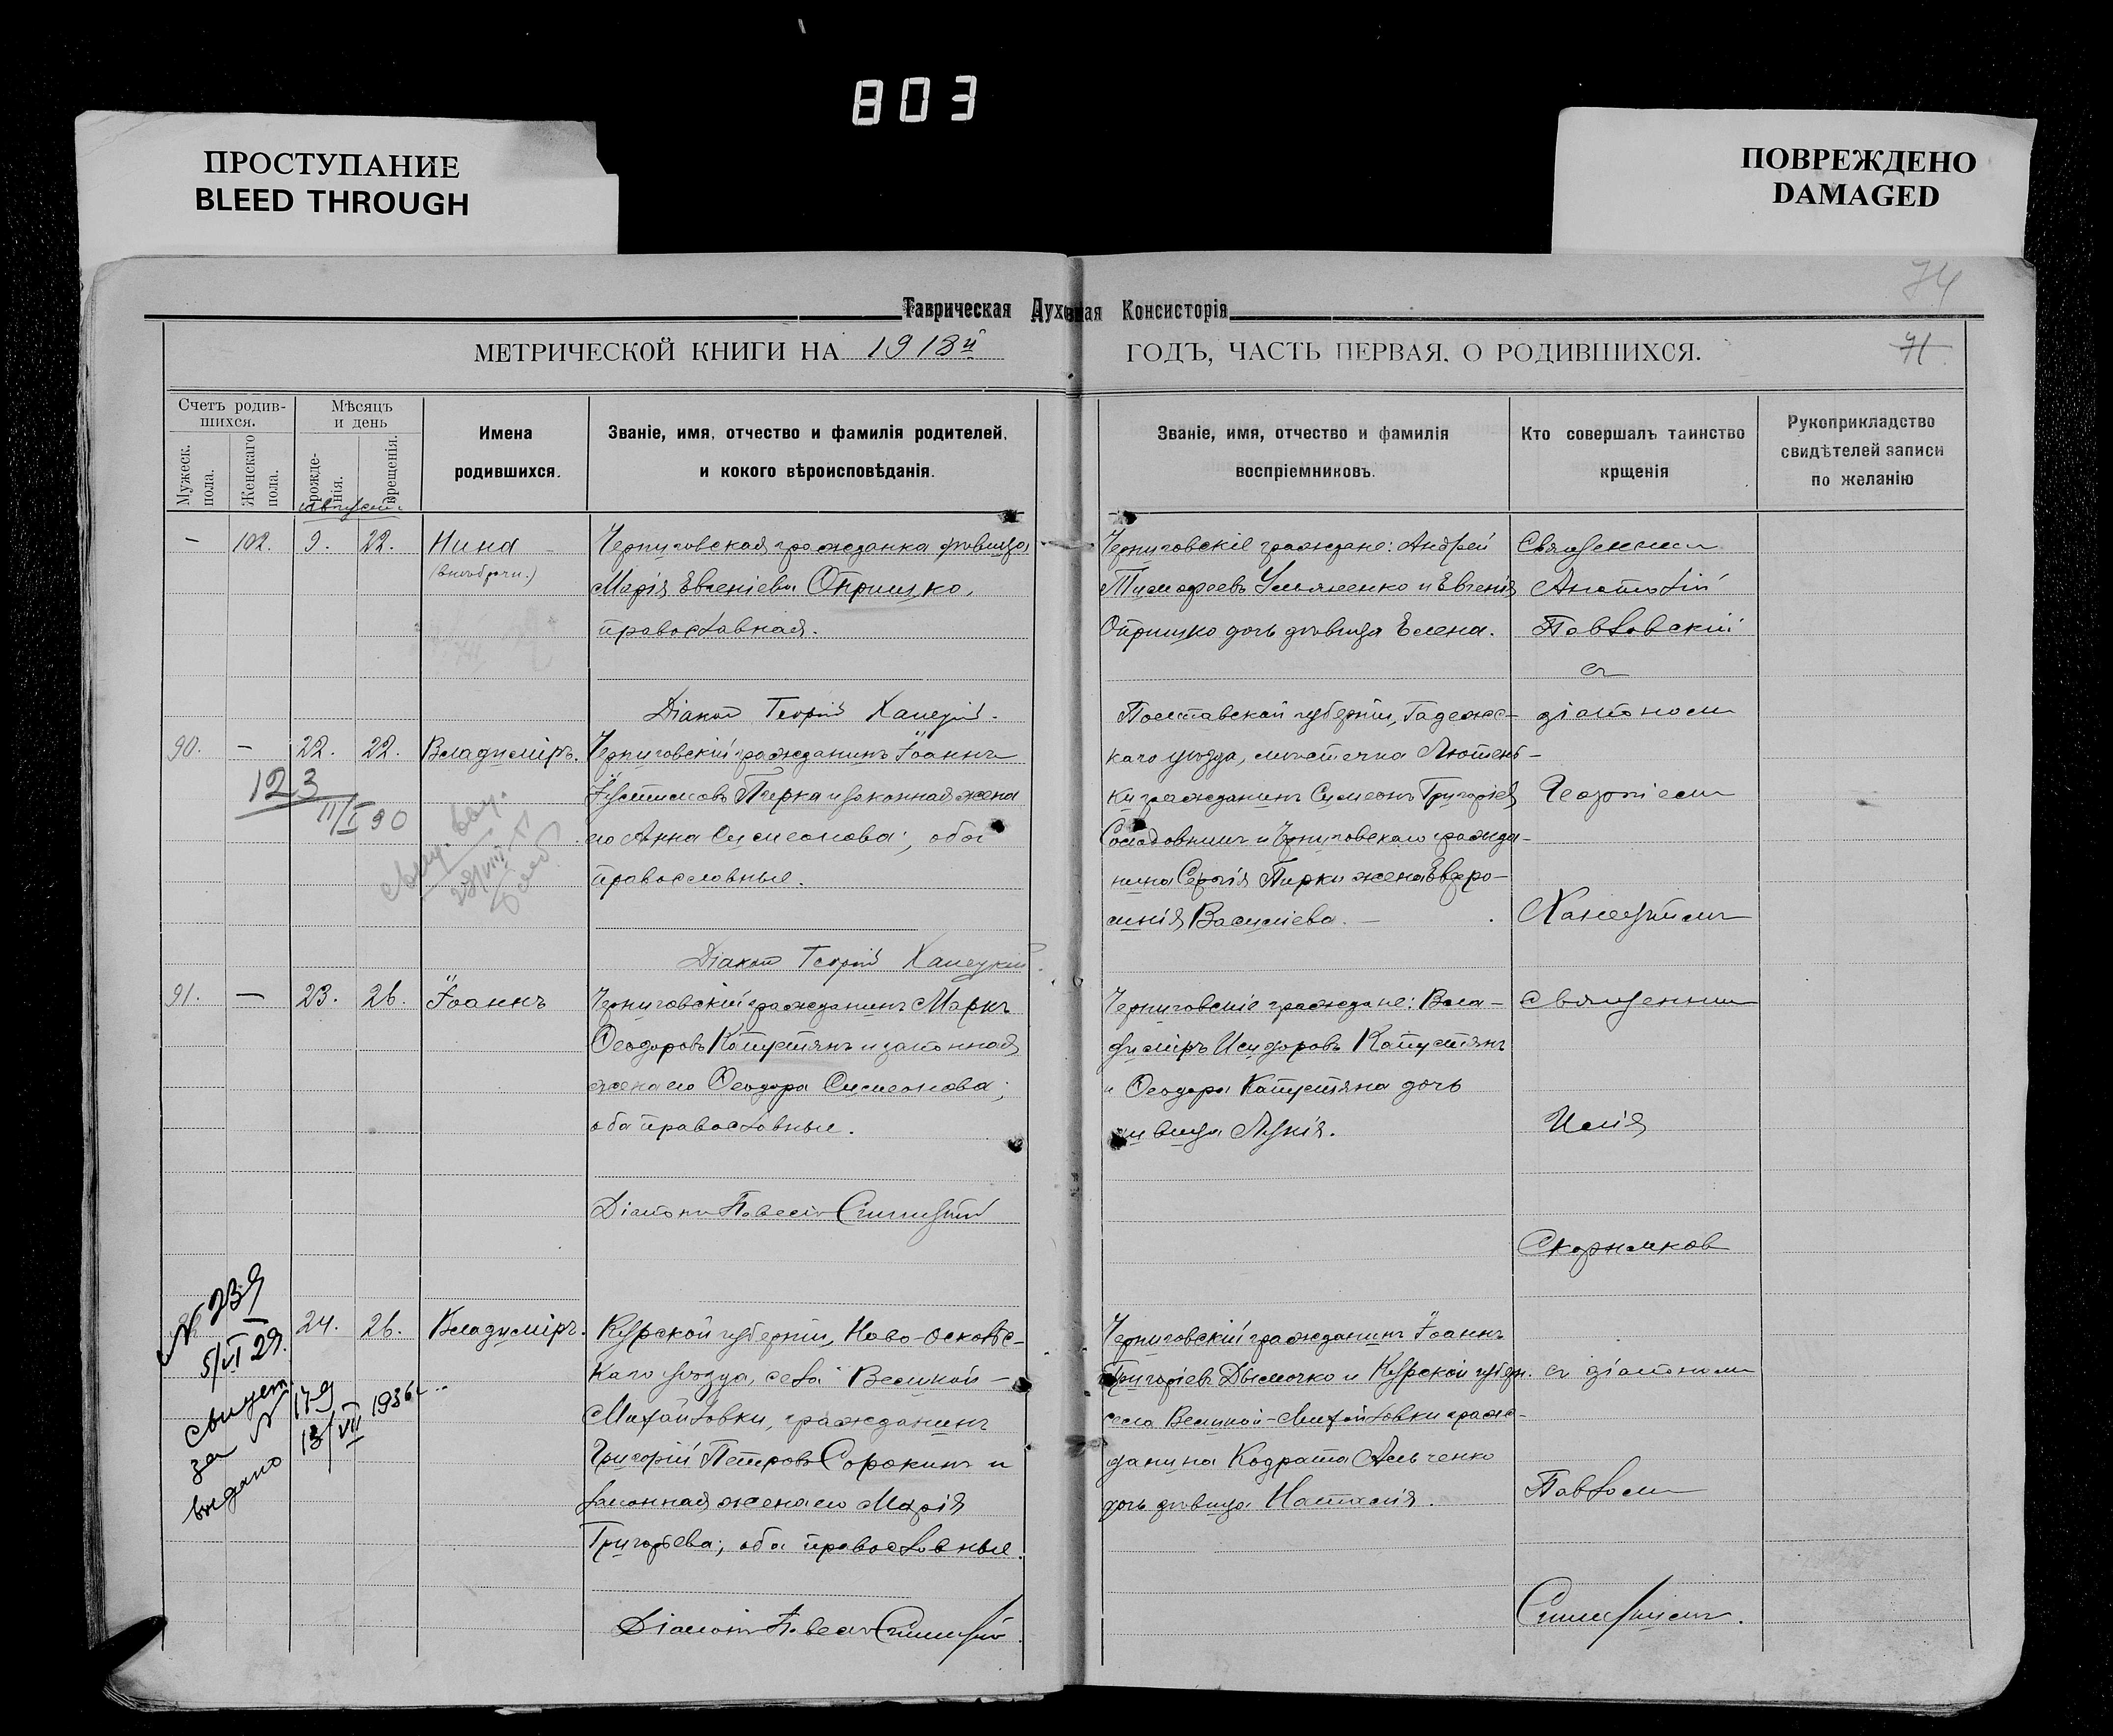 803
ПРОСТУПАНИЕ
BLEED THROUGH
ПОВРЕЖДЕНО
DAMAGED
74
Таврическая Духовная Консисторія
МЕТРИЧЕСКОЙ КНИГИ НА 1918й ГОДЪ, ЧАСТЬ ПЕРВАЯ, О РОДИВШИХСЯ.
71
Счетъ родив-
шихся.
Мужеск.
пола.
Женскаго
пола.
Мѣсяцъ
и день
рожде-
нія.
крещенія.
Имена
родившихся.
Званіе, имя, отчество и фамилія родителей,
и кокого вѣроисповѣданія.
Званіе, имя, отчество и фамилія
воспріемниковъ.
Кто совершалъ таинство
крщенія
Рукоприкладство
свидѣтелей записи
по желанію
Августъ
— 102. 9. 22. Нина
(внѣбрачн.)
Черниговская гражданка дѣвица
Марія Евгеніева Опришко,
православная.
Діаконъ Георгій Ханецкій.
Черниговскіе граждане: Андрей
Тимофеевъ Ульяненко и Евгенія
Опришко дочь дѣвица Елена.
Священникъ
Анатолій
Павловскій
съ
діакономъ
Георгіемъ
Ханецкимъ
90. — 22. 22. Владиміръ.
123
11/I 30
Черниговскій гражданинъ Іоаннъ
Іустиновъ Пирка и законная жена
его Анна Симеонова; оба
православные.
Діаконъ Георгій Ханецкій.
Полтавской губерніи, Гадячс-
каго уѣзда, мѣстечка Лютень-
ки гражданинъ Симеонъ Григоріев
Солодовникъ и Черниговскаго гражда-
нина Сергія Пирки жена Евфро-
синія Василіева. —
91. — 23. 26. Іоаннъ
Черниговскій гражданинъ Маркъ
Ѳеодоровъ Капустянъ и законная
жена его Ѳеодора Симеонова;
оба православные.
Діаконъ Павелъ Синицкій
Черниговскіе граждане: Вла-
диміръ Исидоровъ Капустянъ
и Ѳеодора Капустяна дочь
дѣвица Лукія.
Священникъ
Илія
Скорняков
съ діакономъ
Павломъ
Синицкимъ.
24. 26. Владиміръ.
N 239
5/VI 29.
свидет.
за N 179
выдано 13/VII 1936 г.
Курской губерніи, Ново-Осколь-
каго уѣзда, села Великой-
Михайловки, гражданинъ
Григорій Петровъ Сорокинъ и
законная жена его Марія
Григорьева; оба православные.
Діаконъ Павелъ Синицкій.
Черниговскій гражданинъ Іоаннъ
Григоріевъ Дымочко и Курской губерн.
села Великой-Михайловки граж-
данина Кодрата Альченко
дочь дѣвица Наталія.